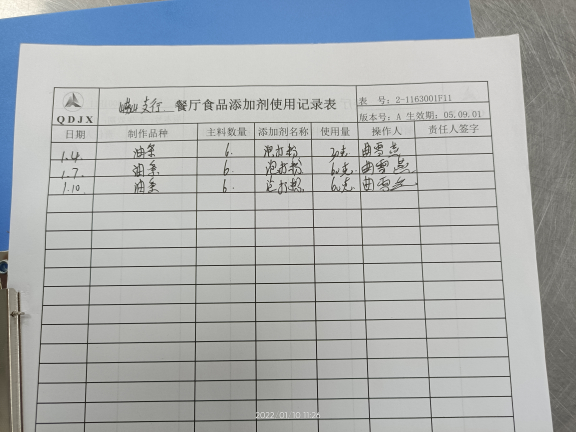 支行 餐厅食品添加剂使用记录表
表 号：2-1163001F11
QDJX
版本号：A 生效期：05.09.01
日期 制作品种 主料数量 添加剂名称 使用量 操作人 责任人签字
1.4. 油条 6. 泡打粉 30克 曲雪
1.7. 油条 6. 泡打粉 60克 曲雪
1.10. 油条 6. 泡打粉 60克 曲雪
2022.01.10 11:24